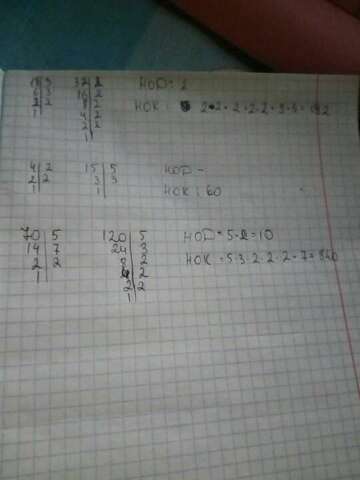 18 3 32 2 НОД = 2
6 3 16 2
2 2 8 2 НОК : 2 · 2 · 2 · 2 · 2 · 3 · 3 =
1 4 2
2 2
1
4 2 15 5 НОД -
2 2 3 3 НОК : 60
1 1
70 5 120 5 НОД = 5 · 2 = 10
14 7 24 3
2 2 8 2 НОК = 5 · 3 · 2 · 2 · 2 · 7 = 840
1 4 2
2 2
1